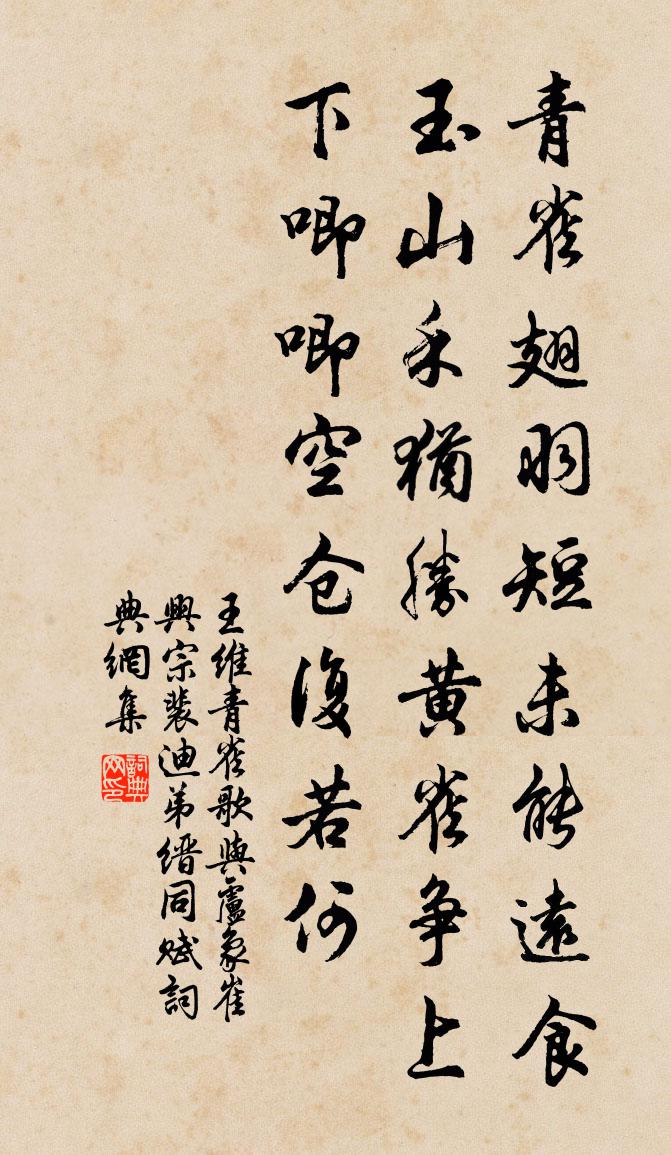 青雀翅羽短未能遠食
玉山禾猶勝黄雀争上
下唧唧空仓復若何
王維青雀歌與盧象崔
興宗裴迪弟缙同赋詞
典網集
詞典
网印